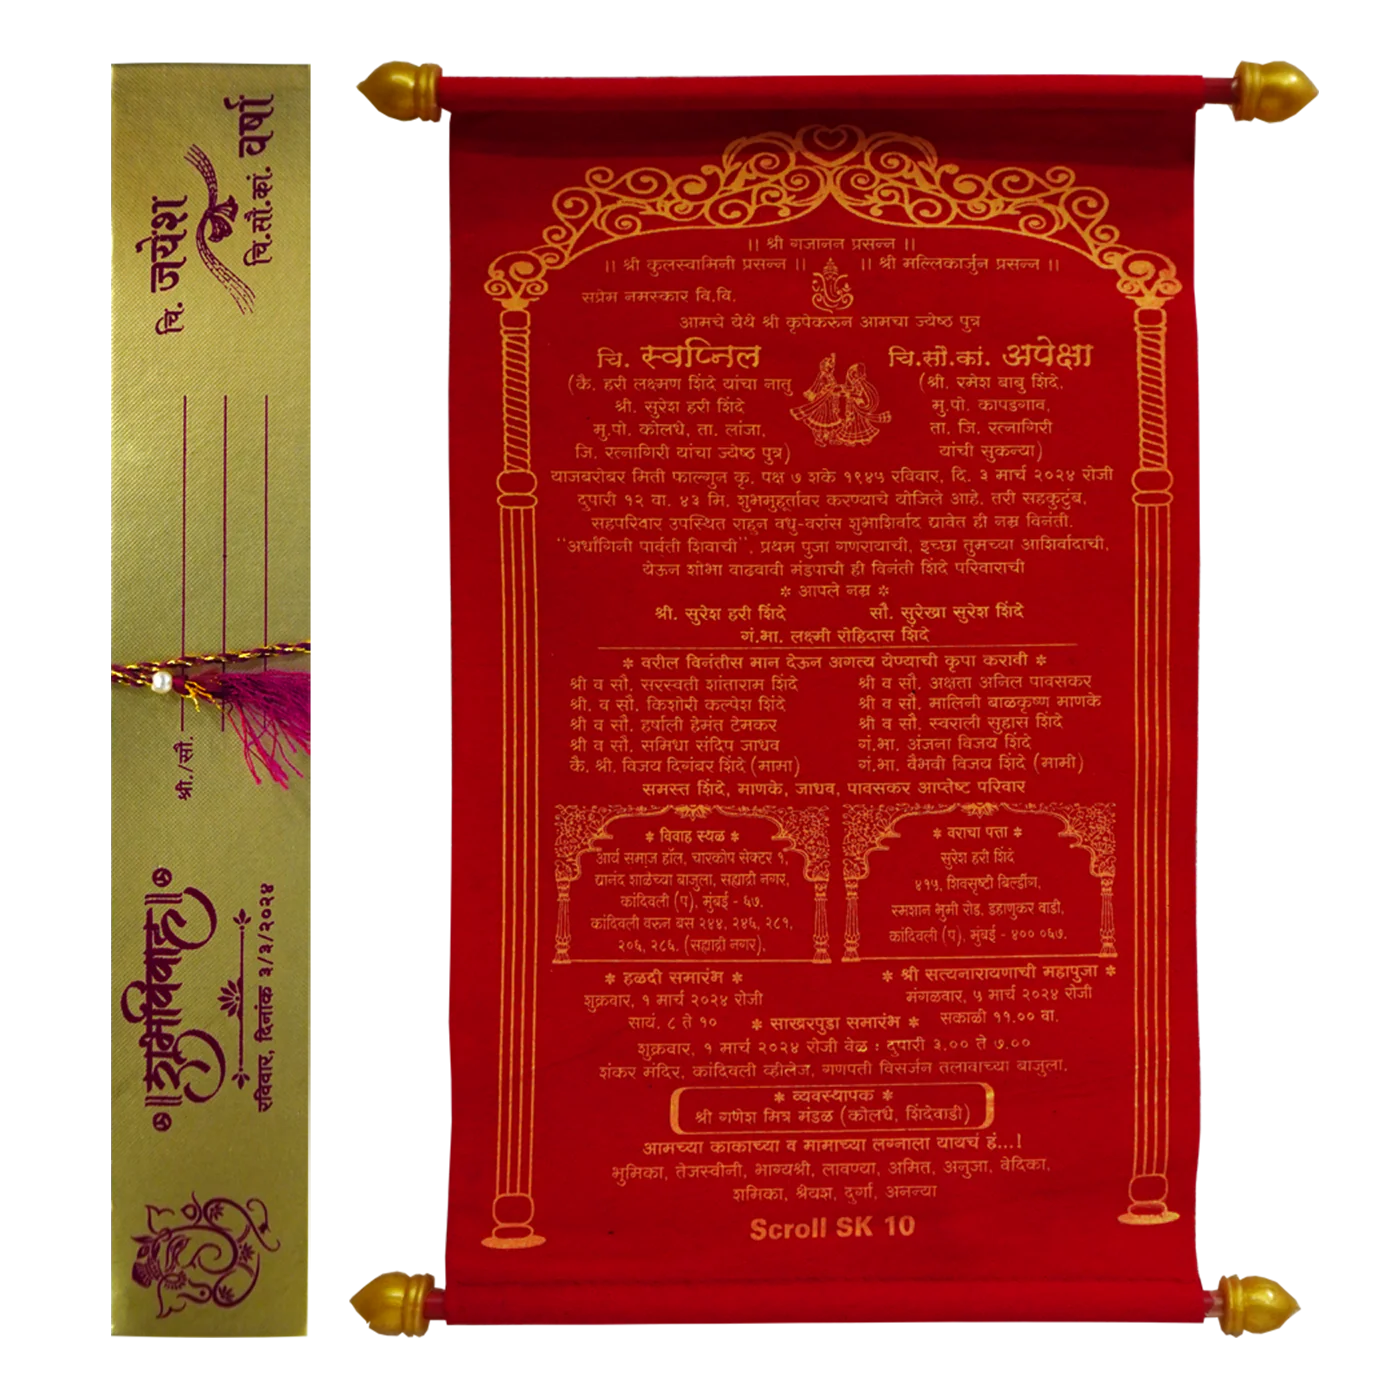 चि. जयेश
चि.सौ.कां. वर्षा
श्री./सौ.
॥शुभविवाह॥
रविवार, दिनांक ३/३/२०२४
।। श्री गजानन प्रसन्न ।।
।। श्री कुलस्वामिनी प्रसन्न ।। ।। श्री मल्लिकार्जुन प्रसन्न ।।
सप्रेम नमस्कार वि.वि.
आमचे येथे श्री कृपेकरुन आमचा ज्येष्ठ पुत्र
चि. स्वप्निल
(कै. हरी लक्ष्मण शिंदे यांचा नातु
श्री. सुरेश हरी शिंदे
मु.पो. कोलधे, ता. लांजा,
जि. रत्नागिरी यांचा ज्येष्ठ पुत्र)
चि.सौ.कां. अपेक्षा
(श्री. रमेश बाबु शिंदे,
मु.पो. कापडगाव,
ता. जि. रत्नागिरी
यांची सुकन्या)
याजबरोबर मिती फाल्गुन कृ. पक्ष ७ शके १९४५ रविवार, दि. ३ मार्च २०२४ रोजी
दुपारी १२ वा. ४३ मि. शुभमुहूर्तावर करण्याचे योजिले आहे. तरी सहकुटुंब,
सहपरिवार उपस्थित राहून वधु-वरांस शुभाशिर्वाद द्यावेत ही नम्र विनंती.
"अर्धांगिनी पार्वती शिवाची", प्रथम पुजा गणरायाची, इच्छा तुमच्या आशिर्वादाची,
येऊन शोभा वाढवावी मंडपाची ही विनंती शिंदे परिवाराची
* आपले नम्र *
श्री. सुरेश हरी शिंदे सौ. सुरेखा सुरेश शिंदे
गं.भा. लक्ष्मी रोहिदास शिंदे
* वरील विनंतीस मान देऊन अगत्य येण्याची कृपा करावी *
श्री व सौ. सरस्वती शांताराम शिंदे
श्री. व सौ. किशोरी कल्पेश शिंदे
श्री व सौ. हर्षाली हेमंत टेमकर
श्री व सौ. समिधा संदिप जाधव
कै. श्री. विजय दिगंबर शिंदे (मामा)
श्री व सौ. अक्षता अनिल पावसकर
श्री व सौ. मालिनी बाळकृष्ण माणके
श्री व सौ. स्वराली सुहास शिंदे
गं.भा. अंजना विजय शिंदे
गं.भा. वैभवी विजय शिंदे (मामी)
समस्त शिंदे, माणके, जाधव, पावसकर आप्तेष्ट परिवार
* विवाह स्थळ *
आर्य समाज हॉल, चारकोप सेक्टर १,
द्यानंद शाळेच्या बाजुला, सह्याद्री नगर,
कांदिवली (प), मुंबई - ६७.
कांदिवली वरुन बस २४४, २४६, २८१,
२०६, २८६. (सह्याद्री नगर),
* वराचा पत्ता *
सुरेश हरी शिंदे
४१५, शिवसृष्टी बिल्डींग,
स्मशान भुमी रोड, डहाणुकर वाडी,
कांदिवली (प), मुंबई - ४०० ०६७.
* हळदी समारंभ *
शुक्रवार, १ मार्च २०२४ रोजी
सायं. ८ ते १०
* श्री सत्यनारायणाची महापुजा *
मंगळवार, ५ मार्च २०२४ रोजी
सकाळी ११.०० वा.
* साखरपुडा समारंभ *
शुक्रवार, १ मार्च २०२४ रोजी वेळ : दुपारी ३.०० ते ७.००
शंकर मंदिर, कांदिवली व्हीलेज, गणपती विसर्जन तलावाच्या बाजुला.
* व्यवस्थापक *
श्री गणेश मित्र मंडळ (कोलधे, शिंदेवाडी)
आमच्या काकाच्या व मामाच्या लग्नाला यायचं हं...!
भुमिका, तेजस्वीनी, भाग्यश्री, लावण्या, अमित, अनुजा, वेदिका,
शमिका, श्रेयश, दुर्गा, अनन्या
Scroll SK 10